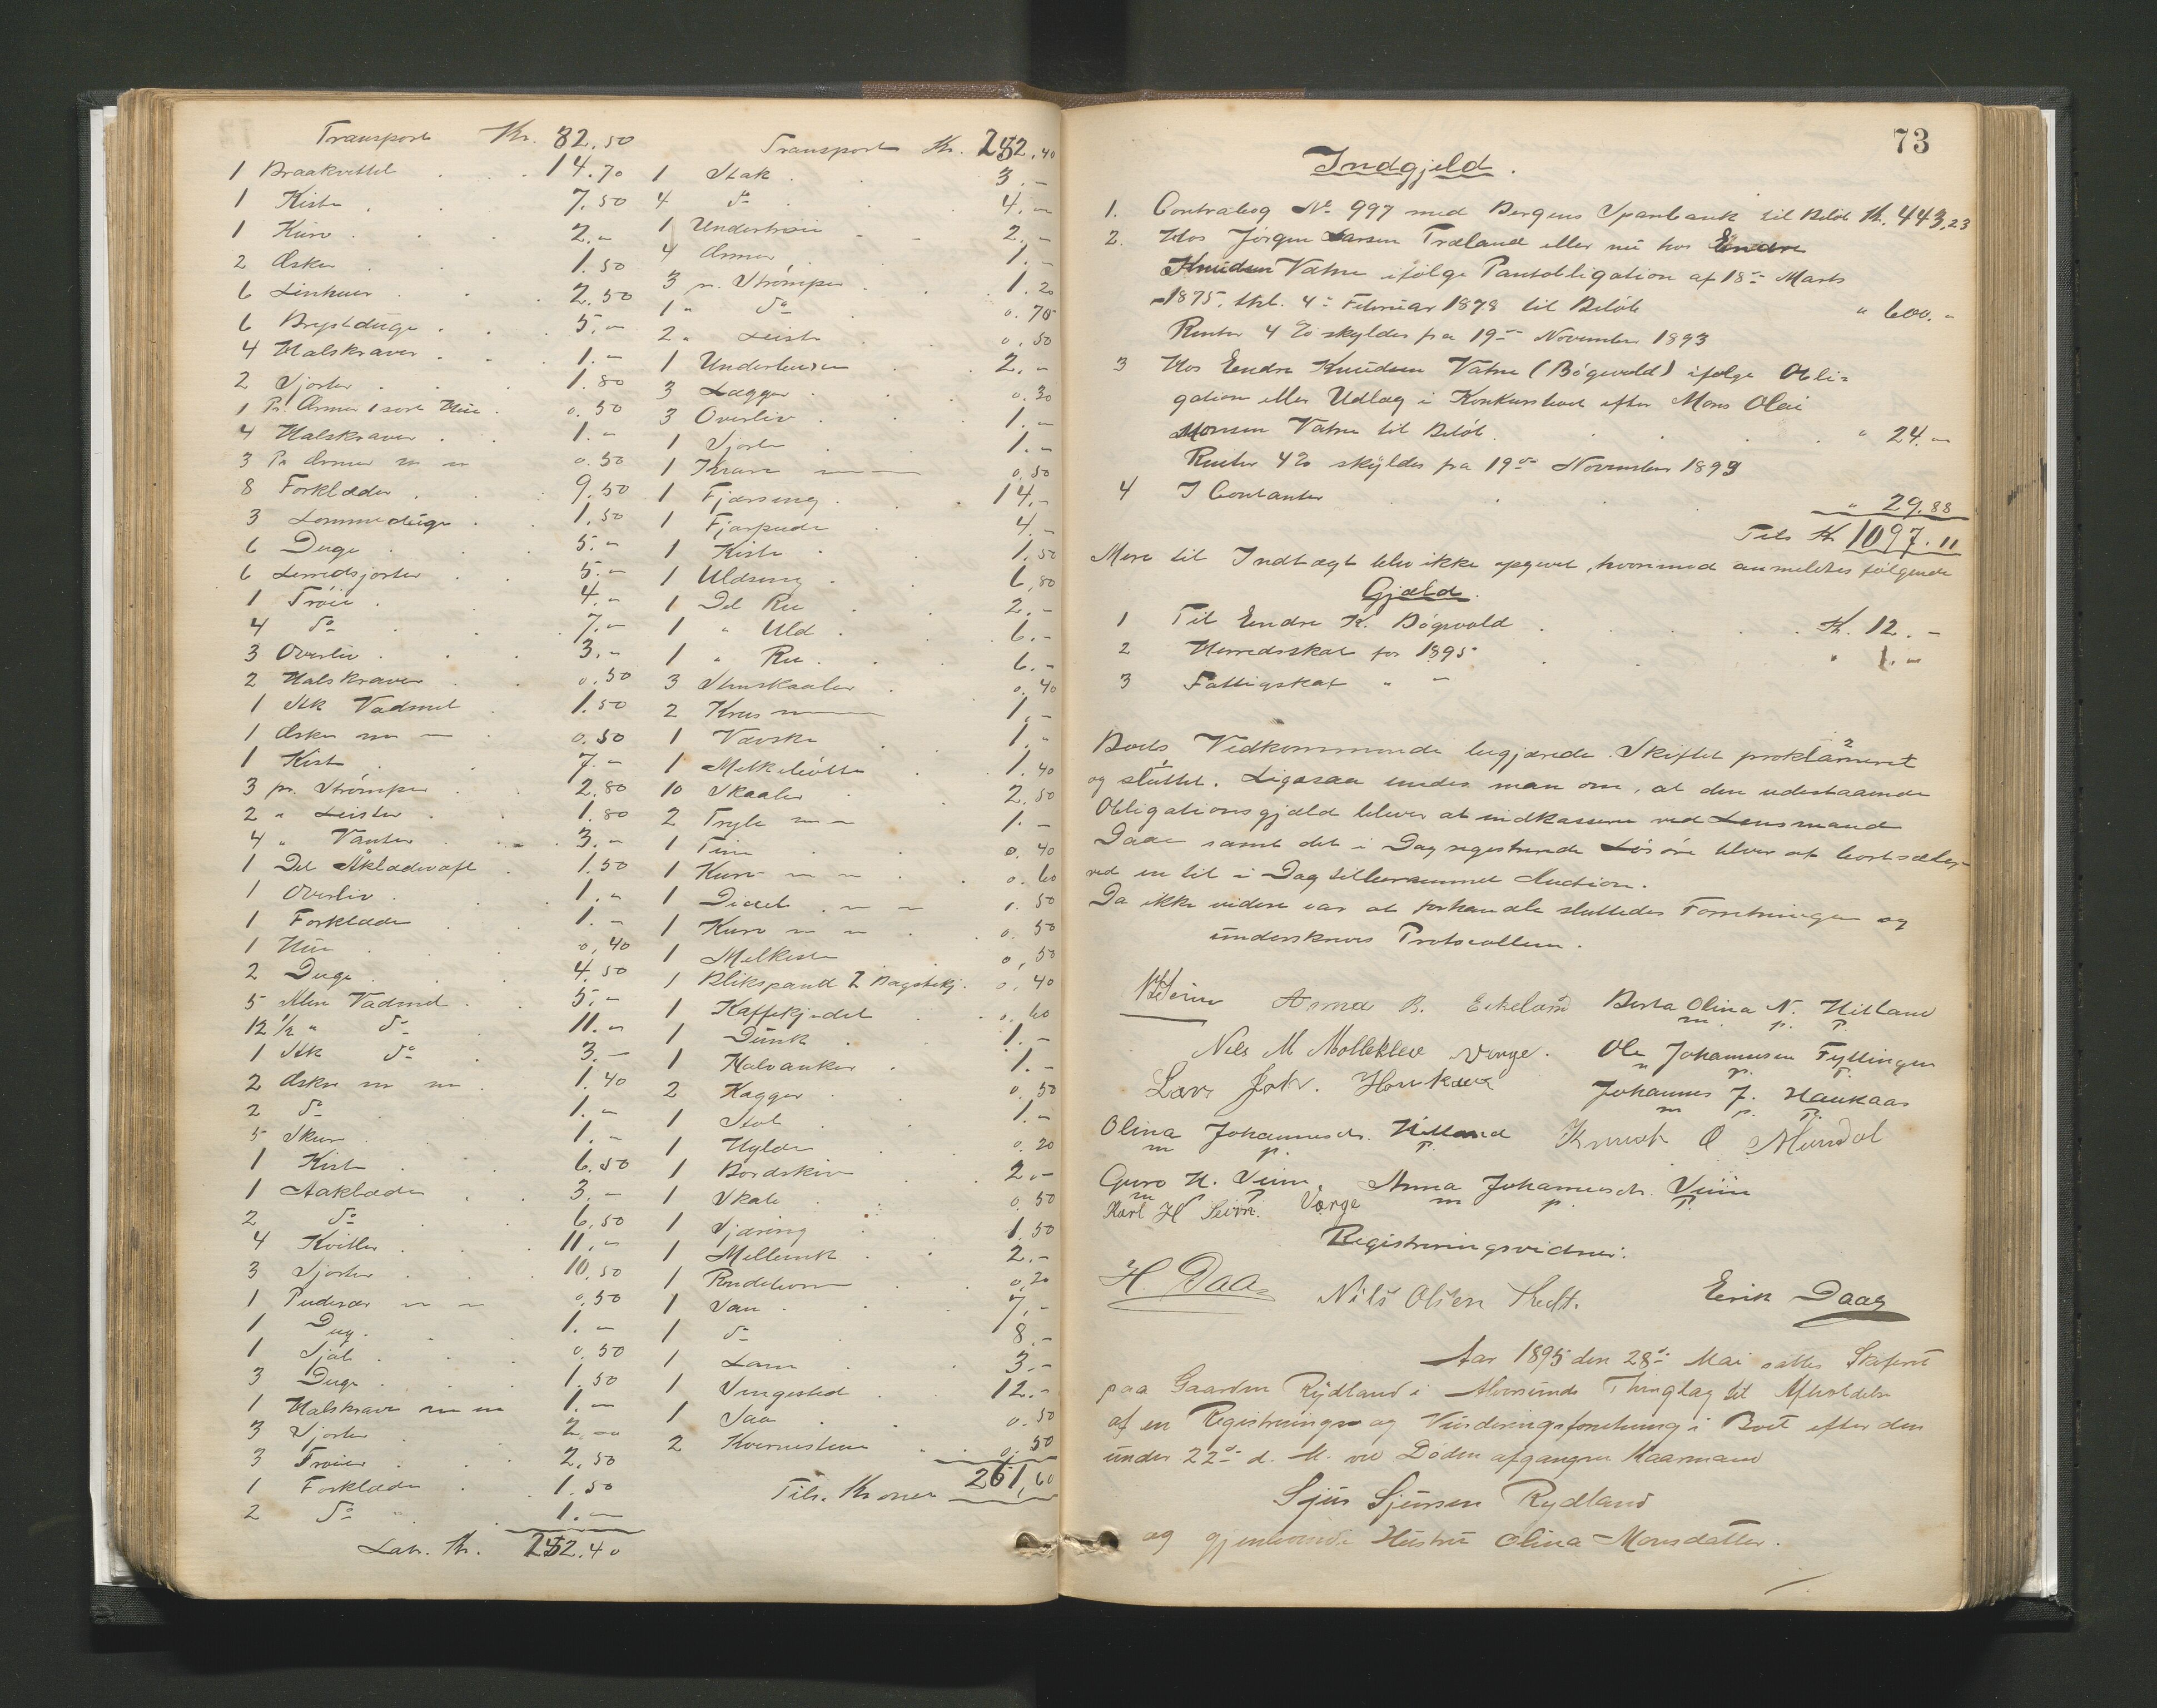 Transport Kr. 82,50
1 Braakvittel 14.70
1 Kiste 7.50
1 Kurv 2.-
2 Æsker 1.50
6 Linhuer 2.50
6 Brystduge 5.-
4 Halskraver 1.-
2 Sjorter 1.80
1 Pr. Ærmer 1 sort Hue 0.50
4 Halskraver 1.-
3 Pr Ærmer 0.50
8 Forklæder 9.50
3 Lommeduge 1.50
6 Duge 5.-
6 Lerredsjorter 5.-
1 Trøie 4.-
4 do 7.-
3 Overliv 3.-
2 Halskraver 0.50
1 Stk Vadmel 1.50
1 Æske 0.50
1 Kiste 7.-
3 pr. Strømper 2.80
2 " Leister 1.80
4 " Vanter 3.-
1 Del Åklædevæft 1.50
1 Overliv 1.-
1 Forklæde 1.-
1 Hue 0.40
2 Duge 4.50
5 Alen Vadmel 5.-
12 1/2 " do 11.-
1 Stk do 3.-
2 Æsker 1.40
2 do 1.-
5 Skur 1.-
1 Kiste 6.50
1 Aaklæde 3.-
2 do 6.50
4 Kvitler 11.-
3 Sjorter 10.50
1 Pudevær 0.50
1 Dug 1.-
1 Sjal 0.50
3 Duge 1.50
1 Halskrave 1.-
3 Sjorter 2.-
3 Trøier 2.50
1 Forklæde 1.50
2 do 1.-
Latr. Kr. 252.40
Transport Kr. 252.40
1 Stak 3.-
4 do 4.-
1 Undertrøie 2.-
4 Ærmer 1.-
3 pr. Strømper 1.20
1 " do 0.70
2 " Leister 0.50
1 Underbuxe 2.-
3 Lagger 0.30
3 Overliv 1.-
1 Sjorte 1.-
1 Krave 0.50
1 Fjærseng 14.-
1 Fjærpude 4.-
1 Kiste 1.50
1 Uldseng 6.80
1 Del Ru 2.-
1 " Uld 6.-
1 " Ru 6.-
3 Stenskaaler 0.40
2 Krus 1.-
1 Vævske 1.-
1 Melkebøtte 1.40
10 Skaaler 2.50
2 Tryle 1.-
1 Tine 0.40
1 Kurv 0.60
1 1.50
1 Kurv 0.50
1 Melkesi 0.50
1 Blikspand 2 Bagstekj. 0.40
1 Kaffekjedel 0.60
1 Dunk 1.-
1 Halvanker 1.-
2 Kagger 0.50
1 Stol 1.-
1 Hylde 0.20
1 Bordskive 2.-
1 Skab 0.50
1 Sjæring 1.50
1 Mellemk 2.-
1 0.20
1 Sau 7.-
1 do 8.-
1 Lam 3.-
1 Sengested 12.-
1 Saa 0.50
2 Kvernstene 0.50
Tils. Kroner 261,60
73
Indgjeld.
1. Contrabog No 997 med Bergens Sparebank til Beløb Kr. 443,23
2. Hos Jørgen Larsen Træland eller nu hos Endre
Knudsen Vatne ifølge Pantobligation af 18de Marts
1875, thl. 4de Februar 1878 til Beløb " 600.-
Renter 4 % skyldes fra 19de November 1893
3 Hos Endre Knudsen Vatne (Bøgevold) ifølge Obli=
gation eller Udlæg i Konkursbod efter Mons Olai
Monsen Vatne til Beløb " 24.-
Renter 4 % skyldes fra 19de November 1899
4 I Contanter " 29.88
Tils Kr 1097.11
Mere til Indtægt blev ikke opgivet, hvormod anmeldtes følgende
Gjæld.
1 Til Endre K. Bøgevold Kr. 12.-
2 Herredsskat for 1895 " 1.-
3 Fattigskat " "
Boets Vedkommende begjærede Skiftet proklameret
og sluttet. Ligesaa endes man om, at den udestaaende
Obligationsgjæld bliver at indkassere ved Lensmand
Daae samt det i Dag registrerede Løsøre bliver at bortsælges
ved en til i Dag tillkommet Auction.
Da ikke videre var at forhandle sluttedes Forretningen og
underskrives Protocollen.
Anna B. Eikeland Berta Olina N. Hilland
m. p. P.
Nils M Mollekleiv Verge. Ole Johannesen Fyllingen
m p. P.
Lars Joh. Haukaas Johannes J. Haukaas
m p. P.
Olina Johannesdr. Hilland Knut O Mundal
m p. P.
Guro H. Seim, Anna Johannesdr. Seim
m P m p. P.
Karl H Seim. Værge
Registreringsvidner:
H. Daae Nils Olsen Tveit. Erik Daae
Aar 1895 den 28de Mai sattes Skiferet
paa Gaarden Rydland i Alversunds Thinglag til Afholdelse
af en Registrerings og Vurderingsforretning i Boet efter den
under 22de d. M. ved Døden afgangne Kaarmand
Sjur Sjursen Rydland
og gjenlevende Hustru Olina Monsdatter.